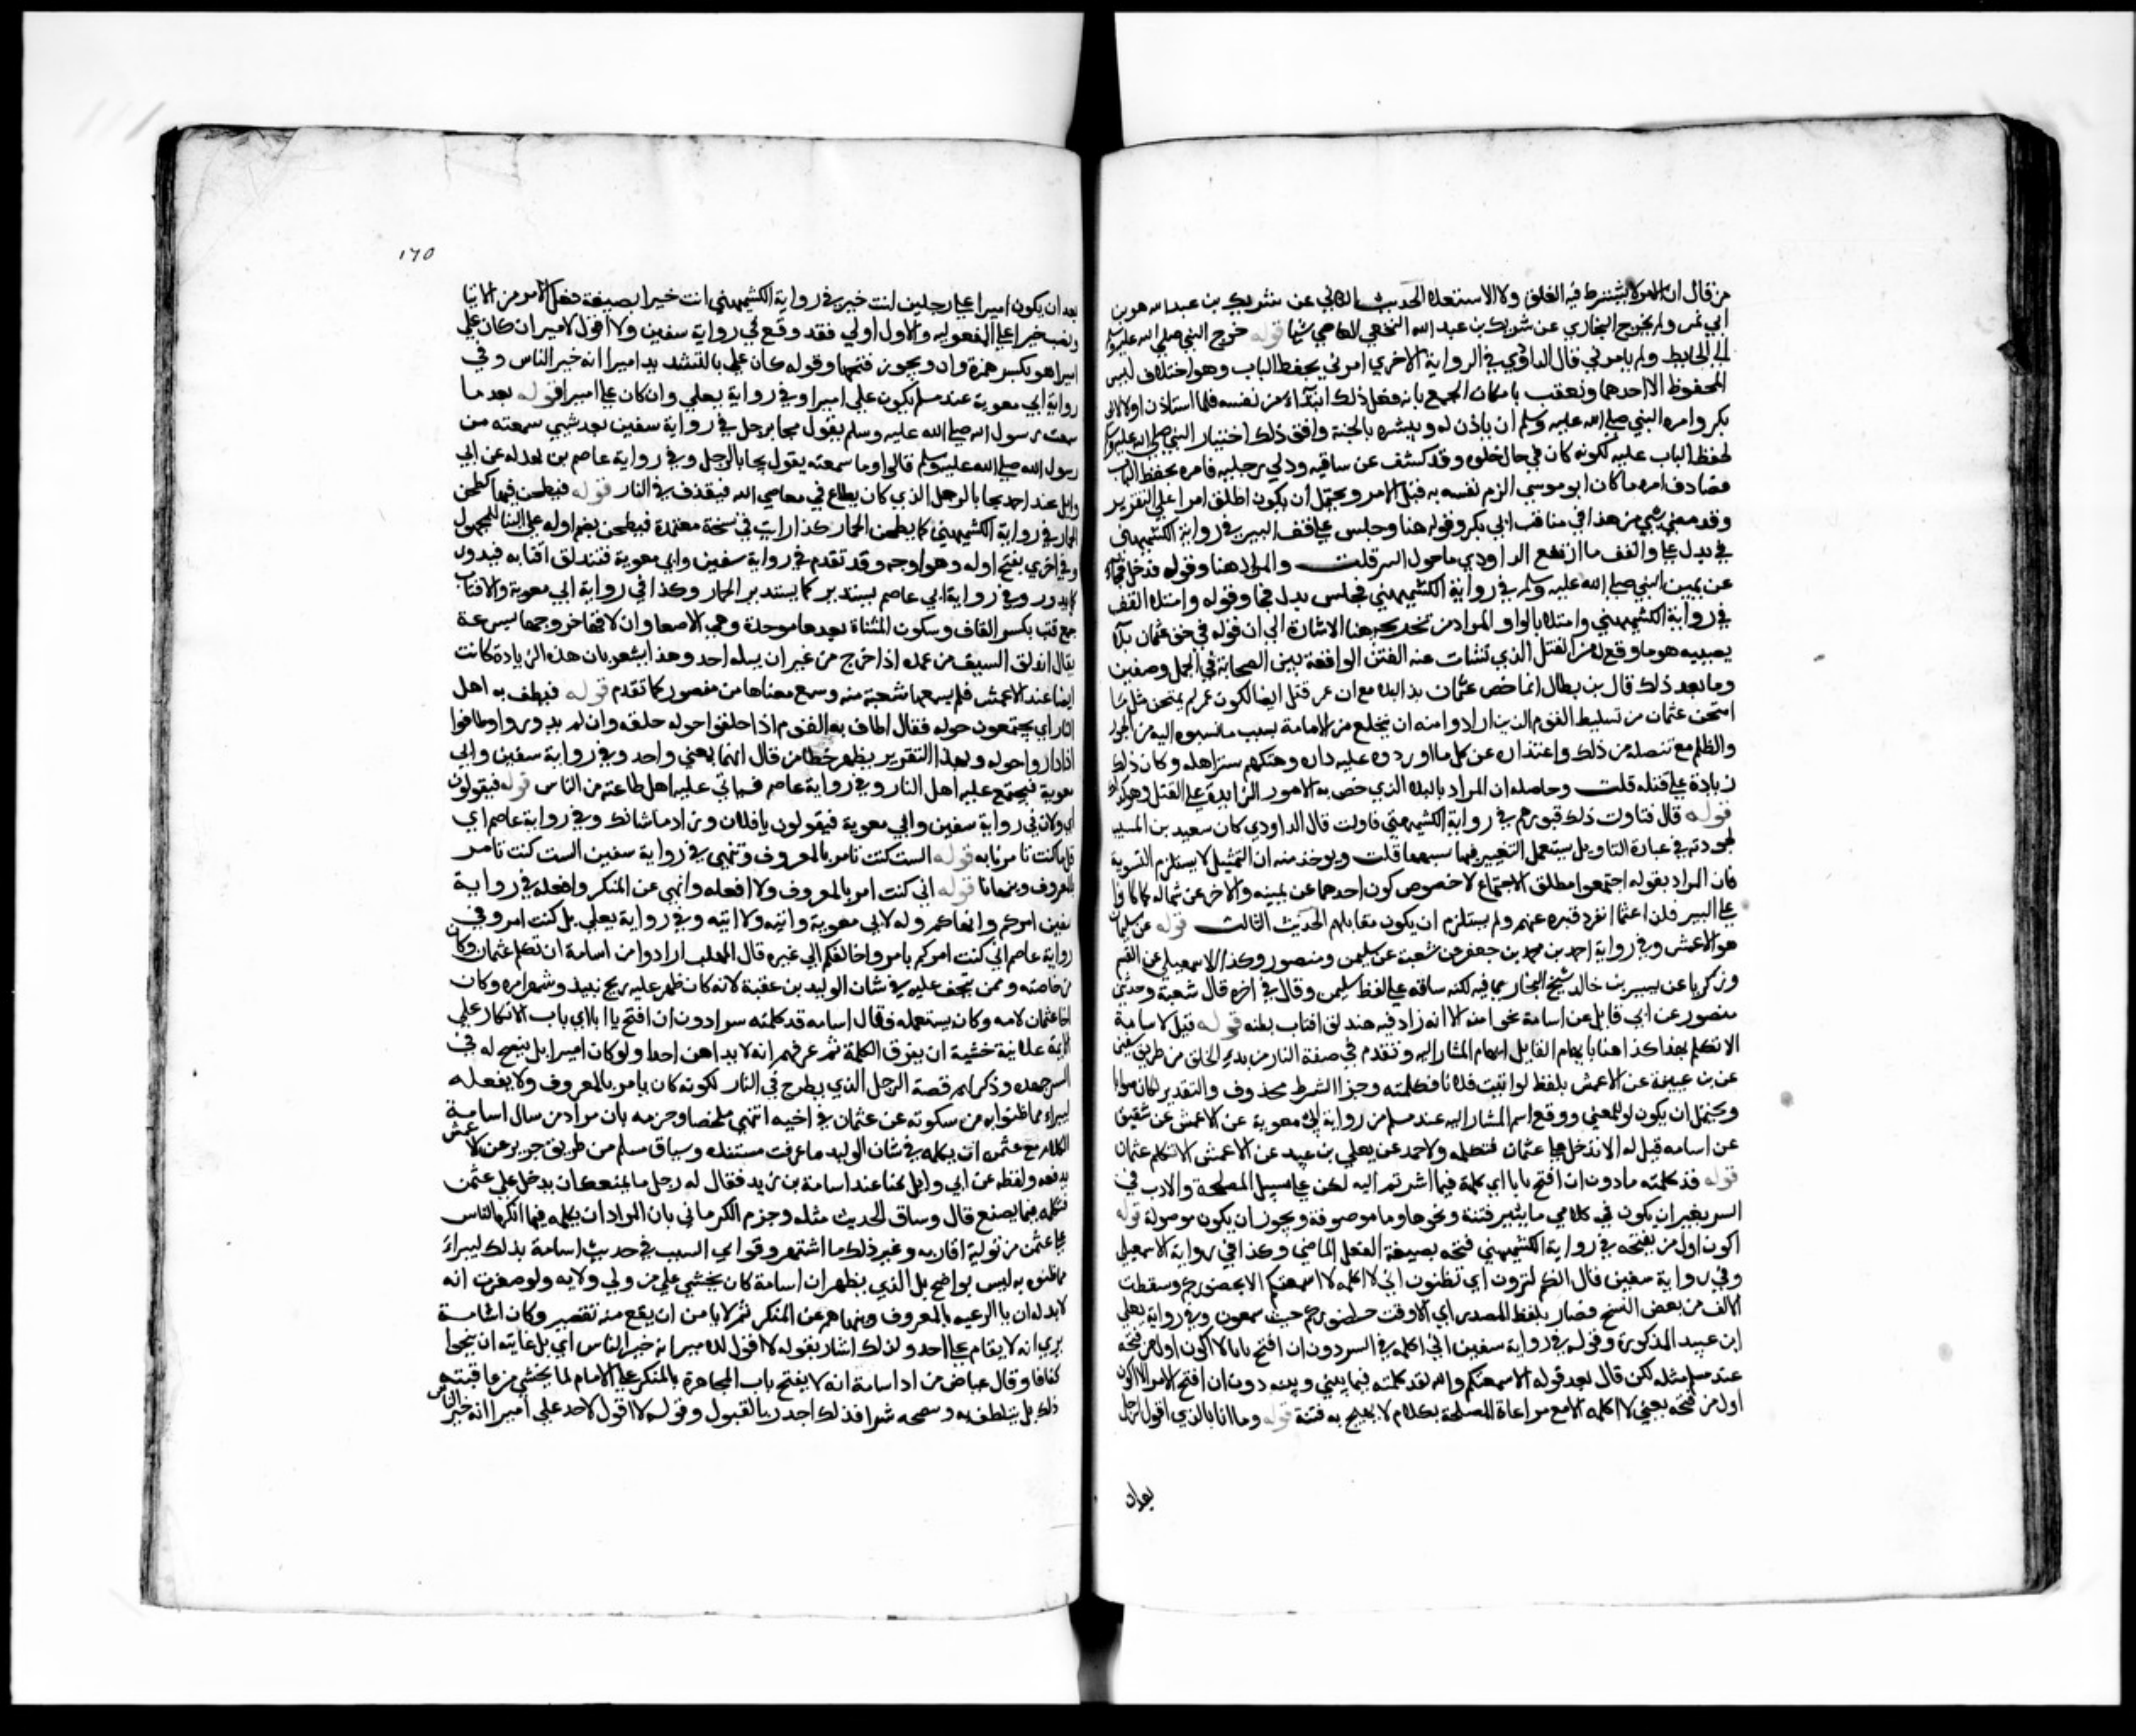 من قال ان الامر لا يشترط فيه العلو ولا الاستعلا الحديث الثاني عن شريك بن عبد الله هو بن
ابي نمر ولم يخرج البخاري عن شريك بن عبد الله النخعي القاضي شيا قوله خرج النبي صلى الله عليه وسلم
الى الحايط ولم يامرني قال الداودي في الرواية الاخري امرني بحفظ الباب وهو اختلاف ليس
المحفوظ الا احدهما وتعقب بامكان الجمع بانه فعل ذلك ابتداء من نفسه فلما استاذن اولا لابي
بكر وامره النبي صلى الله عليه وسلم ان ياذن له ويبشره بالجنة وافق ذلك اختيار النبي صلى الله عليه وسلم
لحفظ الباب عليه لكونه كان في حال خلوه وقد كشف عن ساقيه ودلي رجليه فامره بحفظ الباب
فصادف امره ما كان ابو موسي الزم نفسه به قبل الامر ويحتمل ان يكون اطلق امرا على التقرير
وقد مضي شي من هذا في مناقب ابي بكر وقوله هنا وجلس على قف البير في رواية الكشميهني
في بدل على والقف ما ارتفع الداودي ما حول البير قلت والمراد هنا وقوله فدخل فجاء
عن يمين النبي صلى الله عليه وسلم في رواية الكشميهني فجلس بدل فجا وقوله وامتلا القف
في رواية الكشميهني وامتلا بالواو والمراد من تخريجه هنا الاشارة الى ان قوله في حق عثمان بلا
يصيبه هو ما وقع له من القتل الذي نشات عنه الفتن الواقعة بين الصحابة في الجمل وصفين
وما بعد ذلك قال بن بطال انما خص عثمان بذ البلا مع ان عمر قتل ايضا لكون عمر لم يمتحن مثل ما
امتحن عثمان من تسليط القوم الذين ارادوا منه ان ينخلع من الامامة بسبب ما نسبوه اليه من الجور
والظلم مع تنصله من ذلك واعتذاره عن كل ما اوردوه عليه داره وهتكهم ستر اهله وكان ذلك
زيادة على قتله قلت وحاصله ان المراد بالبلا الذي خص به الامور الزايدة على القتل وهو كذلك
قوله قال فتاولت ذلك قبورهم في رواية الكشميهني فاولت قال الداودي كان سعيد بن المسيب
لجودته في عبارة التاويل يستعمل التعبير فيما سمعها قلت ويوخذ منه ان التمثيل لا يستلزم التسوية
فان المراد بقوله اجتمعوا مطلق الاجتماع لا خصوص كون احدهما عن يمينه والاخر عن شماله كما كانوا
على البير فلن اعثما انفرد قبره عنهم ولم يستلزم ان يكون مقابلهم الحديث الثالث قوله عن سليمان
هو الاعمش وفي رواية احمد بن محمد بن جعفر عن شعبة عن سليمن ومنصور وكذا الاسمعيلي عن القسم
بن زكريا عن بسر بن خالد شيخ البخاري فيه لكنه ساقه على لفظ سليمن وقال في اخره قال شعبة وحدثني
منصور عن ابي وايل عن اسامة نحوا منه الا انه زاد فيه فتندلق اقتاب بطنه قوله قيل لاسامة
الا تكلم هذا كذا هنا بابهام القايل ابهام المشار اليه وتقدم في صفة النار من بدء الخلق من طريق سفين
عن بن عيينة عن الاعمش بلفظ لو اتيت فلانا فكلمته وجزا الشرط محذوف والتقدير لكان صوابا
ويحتمل ان يكون لو للتمني ووقع اسم المشار اليه عند مسلم من رواية ابي معوية عن الاعمش عن شقيق
عن اسامه قيل له الا تدخل على عثمان فتكلمه ولاحمد عن يعلي بن عبيد عن الاعمش الا تكلم عثمان
قوله قد كلمته ما دون ان افتح بابا اي كلمة فيما اشرتم اليه لكن على سبيل المصلحة والادب في
السر بغير ان يكون في كلامي ما يثير فتنة ونحوها وما موصوفة ويجوز ان يكون موصولة قوله
اكون اول من يفتحه في رواية الكشميهني فتحه بصيغة الفعل الماضي وكذا في رواية الاسمعيلي
وفي رواية سفين قال انكم لترون اي تظنون اني لا اكلمه لا اسمعكم الا بحضوركم وسقطت
الالف من بعض النسخ فصار بلفظ المصدر اي الا وقت حضوركم حيث تسمعون وفي رواية يعلي
ابن عبيد المذكورة وقوله في رواية سفين اني اكلمه في السر دون ان افتح بابا لا اكون اول من فتحه
عند مسلم مثله لكن قال بعد قوله الا سمعتكم والله لقد كلمته فيما بيني وبينه دون ان افتح امرا لا اكون
اول من فتحه يعني لا اكلمه الا مع مراعاة المصلحة بكلام لا يهيج به فتنة قوله وما انا بالذي اقول لرجل
بعد ان
١٦٥
بعد ان يكون اميرا على رجلين انت خير في رواية الكشميهني ائت خيرا بصيغة فعل الامر من الاتيا
ونصب خيرا على المفعوليه والاول اولي فقد وقع في رواية سفين ولا اقول لامير ان كان علي
اميرا هو بكسر همزة وان ويجوز فتحها وقوله كان علي بالتشديد اميرا انه خير الناس وفي
رواية ابي معوية عند مسلم يكون علي اميرا وفي رواية يعلي وان كان علي اميرا قوله بعد ما
سمعت رسول الله صلى الله عليه وسلم يقول يجا برجل في رواية سفين بعد شيي سمعته من
رسول الله صلى الله عليه وسلم قالوا وما سمعته يقول يجا بالرجل وفي رواية عاصم بن بهدله عن ابي
وايل عند احمد يجا بالرجل الذي كان يطاع في معاصي الله فيقذف في النار قوله فيطحن فيها كطحن
الحمار في رواية الكشميهني كما يطحن الحمار كذا رايت في نسخة معتمدة فيطحن بضم اوله على البنا للمجهول
وفي اخري بفتح اوله وهو اوجه وقد تقدم في رواية سفين وابي معوية فتندلق اقتابه فيدور
كما يدور وفي رواية ابي عاصم يستدير كما يستدير الحمار وكذا في رواية ابي معوية والاقتاب
جمع قتب بكسر القاف وسكون المثناة بعدها موحدة وهي الامعا واندلاقها خروجها بسرعة
يقال اندلق السيف من غمده اذا خرج من غير ان يسله احد وهذا يشعر بان هذه الزيادة كانت
ايضا عند الاعمش فلم يسمعها شعبة منه وسمع معناها من منصور كما تقدم قوله فيطف به اهل
النار اي يجتمعون حوله فقال اطاف به القوم اذا حلقوا حوله حلقه وان لم يدوروا وطافوا
اذا داروا حوله وبهذا التقرير يظهر خطا من قال انهما بمعني واحد وفي رواية سفين وابي
معوية فيجتمع عليه اهل النار وفي رواية عاصم فياتي عليه اهل طاعته من الناس قوله فيقولون
اي فلان في رواية سفين وابي معوية فيقولون يا فلان وزاد ما شانك وفي رواية عاصم اي
فل ما كنت تامرنا به قوله الست كنت تامر بالمعروف وتنهي في رواية سفين الست كنت تامر
بالمعروف وتنهانا قوله اني كنت امر بالمعروف ولا افعله وانهي عن المنكر وافعله في رواية
سفين امركم وانهاكم وله لابي معوية واتيه ولا اتيه وفي رواية يعلي بل كنت امر وفي
رواية عاصم اني كنت امركم بامر واخالفكم الي غيره قال المهلب ارادوا من اسامة ان تكلم عثمان وكان
من خاصته وممن يخف عليه في شان الوليد بن عقبة لانه كان ظهر عليه ريح نبيذ وشهر امره وكان
اخا عثمان لامه وكان يستعمله فقال اسامه قد كلمته سرا دون ان افتح بابا اي باب الانكار علي
الايمة علانية خشية ان يفرق الكلمة ثم عرفهم انه لا يداهن احدا ولو كان اميرا بل ينصح له في
السر جهده وذكر لهم قصة الرجل الذي يطرح في النار لكونه كان يامر بالمعروف ولا يفعله
ليبراء مما ظنوا به من سكوته عن عثمان في اخيه انتهي ملخصا وجزمه بان مراد من سال اسامة
الكلام مع عثمن ان يكلمه في شان الوليد ما عرفت مستنده وسياق مسلم من طريق جرير عن الاعمش
يدفعه ولفظه عن ابي وايل كنا عند اسامة بن زيد فقال له رجل ما يمنعك ان يدخل علي عثمن
فتكلمه فيما يصنع قال وساق الحديث مثله وجزم الكرماني بان المراد ان يكلمه فيما انكره الناس
على عثمن من تولية اقاربه وغير ذلك ما اشتهر وقو اي السبب في حديث اسامة بذلك ليبراء
مما ظنوه به ليس بواضح بل الذي يظهر ان اسامة كان يخشي علي من ولي ولايه ولو صغرت انه
لا بد له ان يا الرعيه بالمعروف وينهاهم عن المنكر ثم لا يامن ان يقع منه تقصير وكان اسامة
يري انه لا يتامر على احد ولذلك اشار بقوله لا اقول للامير انه خير الناس اي بل غايته ان ينجوا
كفافا وقال عياض مراد اسامة انه لا يفتح باب المجاهرة بالمنكر على الامام لما يخشي من عاقبته
ذلك بل يتلطف به وسمحه سرا فذلك اجدر بالقبول وقوله لا اقول لاحد علي اميرا انه خير الناس